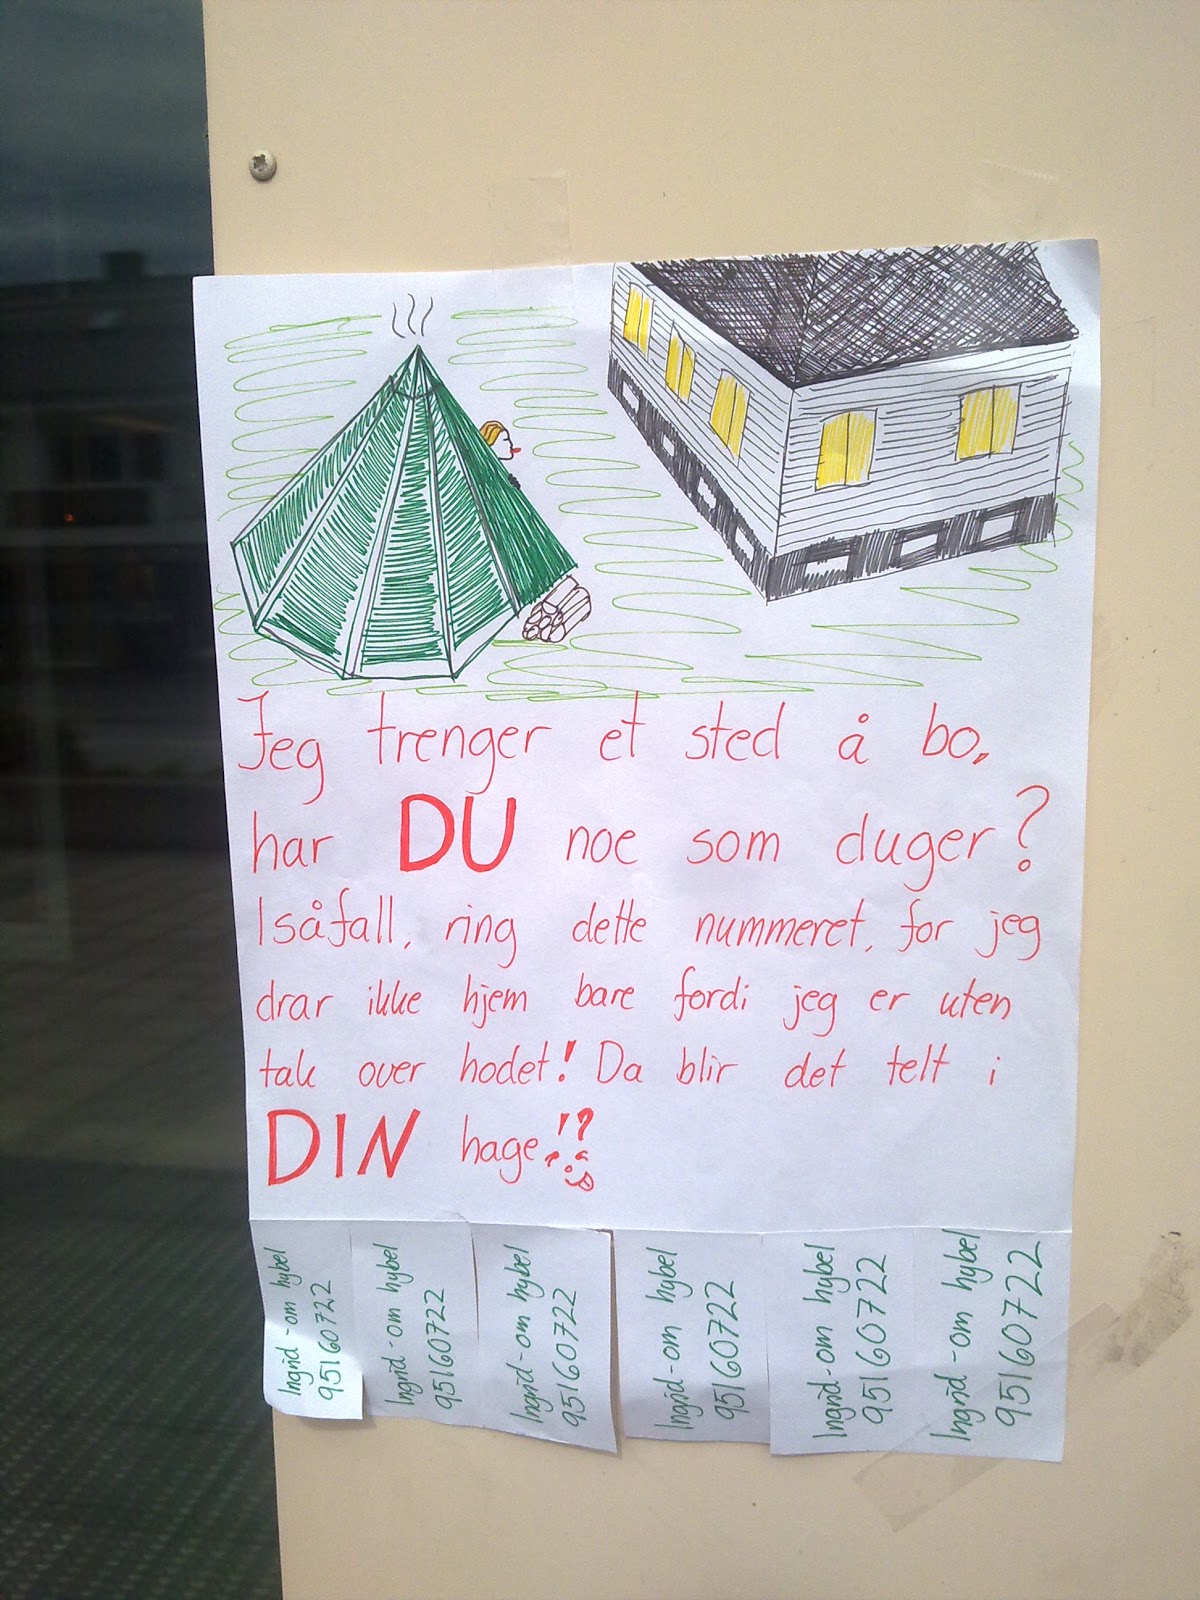 Jeg trenger et sted å bo,
har DU noe som duger?
Isåfall, ring dette nummeret, for jeg
drar ikke hjem bare fordi jeg er uten
tak over hodet! Da blir det telt i
DIN hage!?
Ingrid - om hybel
95160722
Ingrid - om hybel
95160722
Ingrid - om hybel
95160722
Ingrid - om hybel
95160722
Ingrid - om hybel
95160722
Ingrid - om hybel
95160722